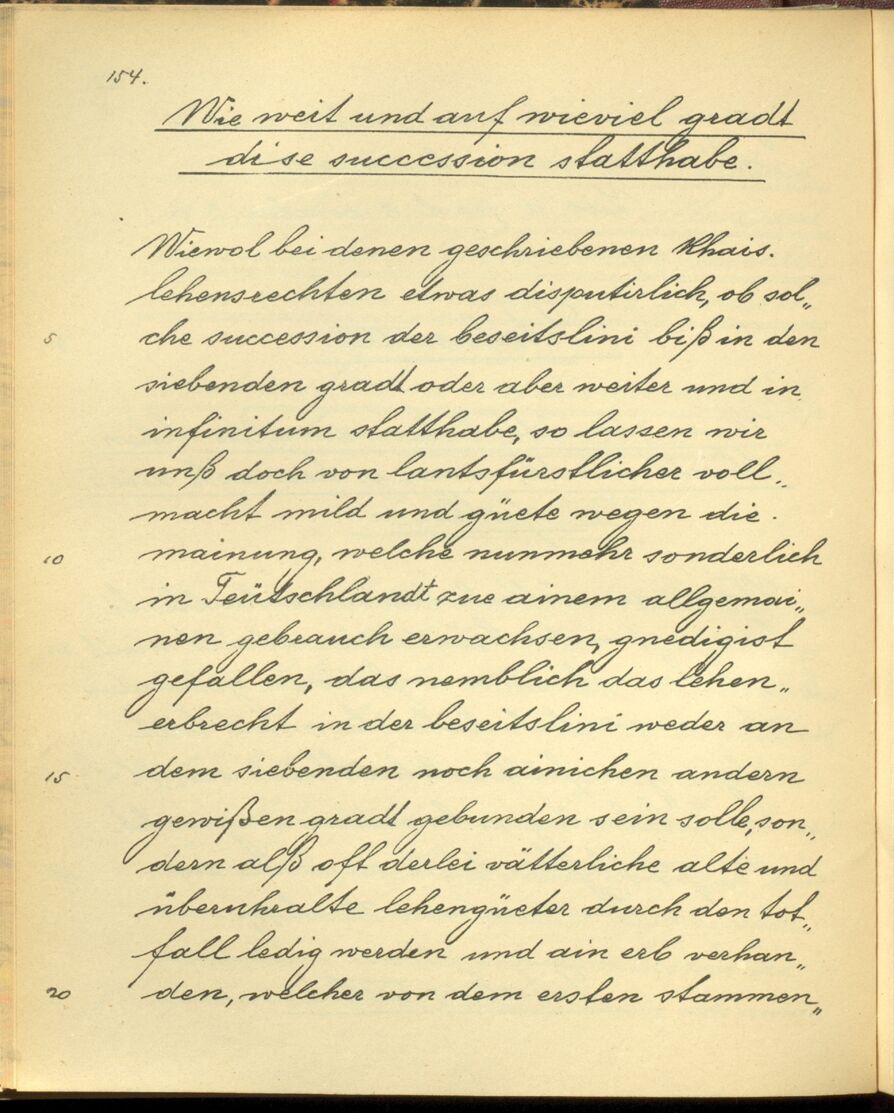 154.
Wie weit und auf wieviel gradt
dise succession statthabe.
Wiewol bei denen geschriebenen Khais.
lehensrechten etwas disputirlich, ob sol„
5 che succession der beseitslini biß in den
siebenden gradt oder aber weiter und in
infinitum statthabe, so lassen wir
unß doch von lantsfürstlicher voll„
macht mild und güete wegen die
10 mainung, welche nunmehr sonderlich
in Teütschlandt zue ainem allgemai„
nen gebrauch erwachsen, gnedigist
gefallen, das nemblich das lehen„
erbrecht in der beseitslini weder an
15 dem siebenden noch ainichen andern
gewißen gradt gebunden sein solle, son„
dern alß oft derlei vätterliche alte und
überuhralte lehengüeter durch den tot„
fall ledig werden und ain erb verhan„
20 den, welcher von dem ersten stammen„